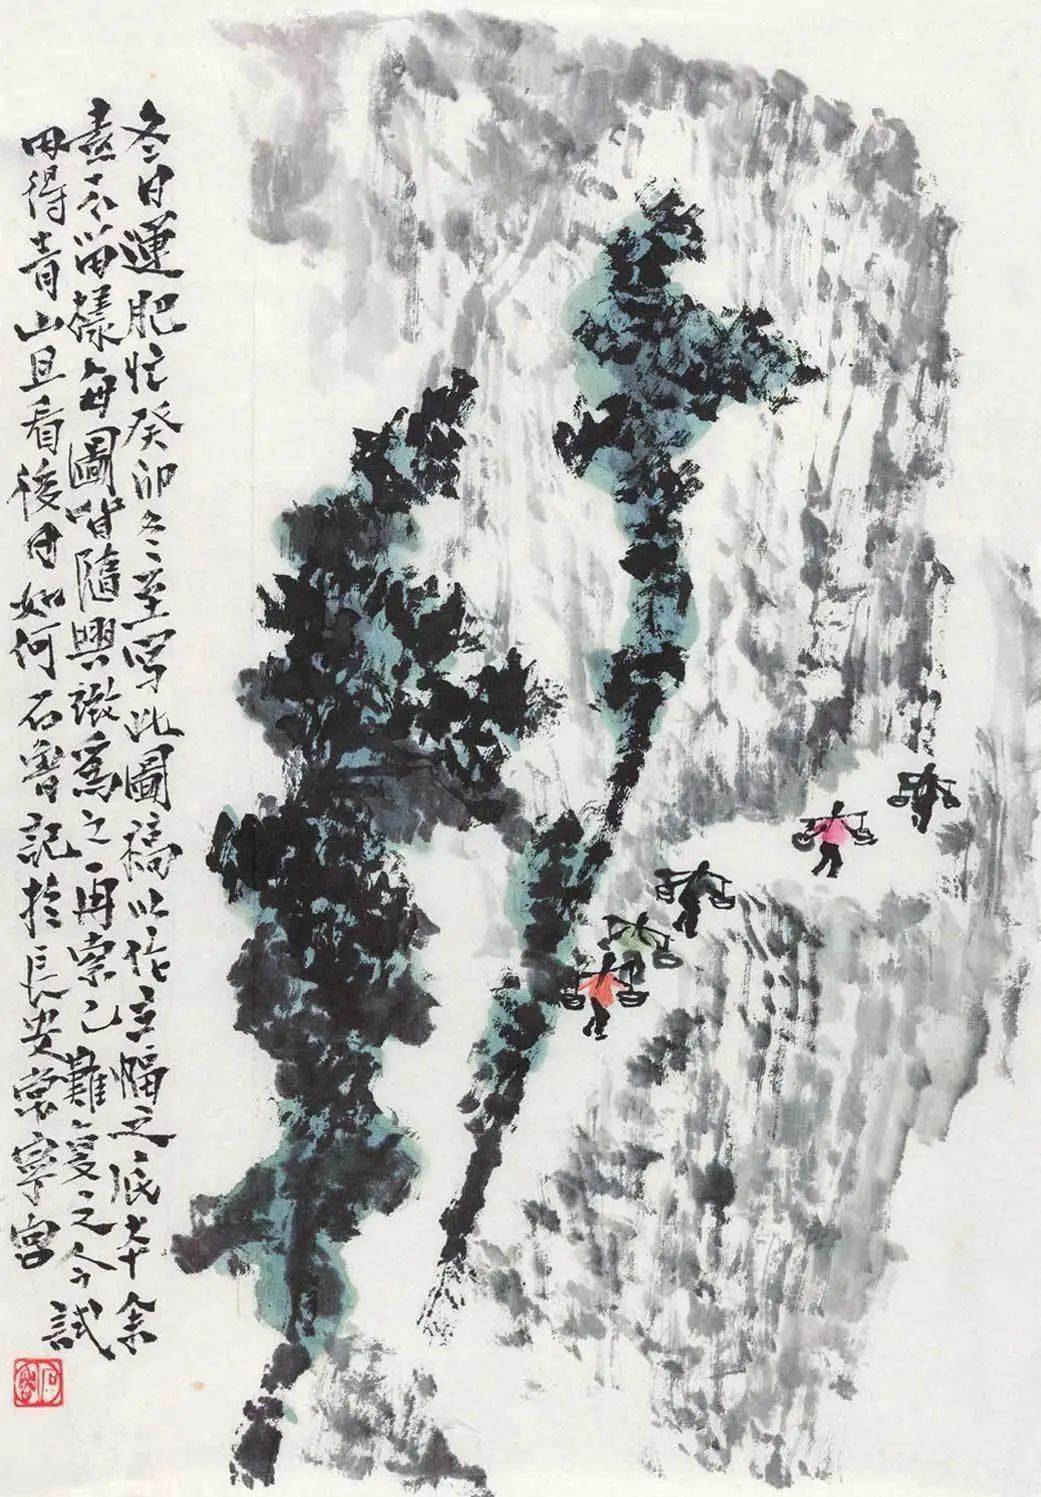 冬日運肥忙癸卯冬至写此圖稿以作立幅之底本余
素不留樣每圖皆隨興為之再索已難复之今試
得青山且看後日如何石魯記於長安常寧宮
石魯